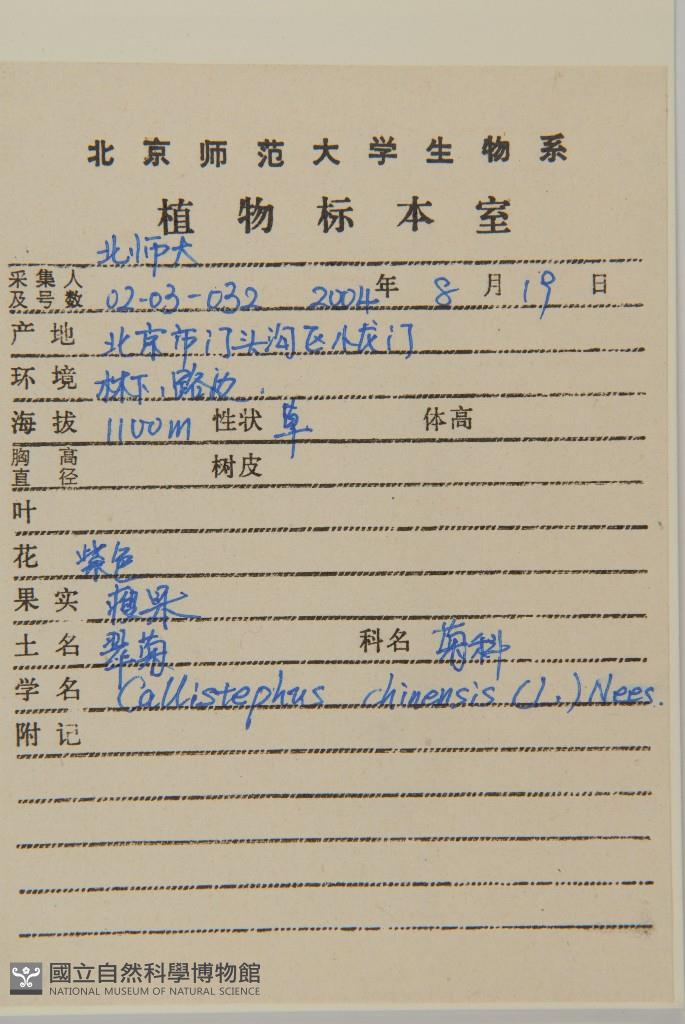 北京师范大学生物系
植物标本室
北师大
采集人及号数 02-03-032 2004年 8月19日
产地 北京市门头沟区小龙门
环境 林下、路边.
海拔 1100m 性状 草 体高
胸高直径 树皮
叶
花 紫色
果实 瘦果
土名 翠菊 科名 菊科
学名 Callistephus chinensis (L.) Nees.
附记
國立自然科學博物館
NATIONAL MUSEUM OF NATURAL SCIENCE